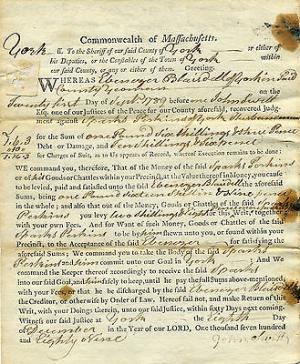 Commonwealth of Massachusetts.
York ss. To the Sheriff of our said County of York or either of
his Deputies, or the Constables of the Town of York within
our said County, or any or either of them. Greeting.
WHEREAS Ebenezer Blaisdell of York in said
County Yeoman on the
Twenty first Day of Sept. 1789 before me John Swett
Esq; one of our Justices of the Peace for our County aforesaid, recovered Judg-
ment against Sparks Perkins of York
for the Sum of one Pound Six Shillings & three Pence
Debt or Damage, and
for Charges of Suit, as to us appears of Record, whereof Execution remains to be done:
WE command you, therefore, That of the Money of the said Sparks Perkins
or of his Goods or Chattles within your Precinct, at the Value thereof in Money, you cause
to be levied, paid and satisfied unto the said Ebenezer Blaisdell the aforesaid
Sums, being one Pound
in the whole; and also that out of the Money, Goods or Chattles of the said Sparks
Perkins you levy two Shillings for this Writ, together
with your own Fees. And for Want of such Money, Goods or Chattles of the said
Sparks Perkins to be by him shewn unto you, or found within your
Precinct, to the Acceptance of the said Ebenezer for satisfying the
aforesaid Sums; We command you to take the Body of the said Sparks
Perkins and him commit unto our Goal in York and We
command the Keeper thereof accordingly to receive the said Sparks
into our said Goal, and him safely to keep, until he pay the full Sums above-mentioned,
with your Fees, or that he be discharged by the said Ebenezer Blaisdell
the Creditor, or otherwise by Order of Law. Hereof fail not, and make Return of this
Writ, with your Doings therein, unto my said Justice, within sixty Days next coming.
Witness our said Justice at York the Eighth Day of
December in the Year of our LORD, One thousand seven hundred
and Eighty Nine
John Swett